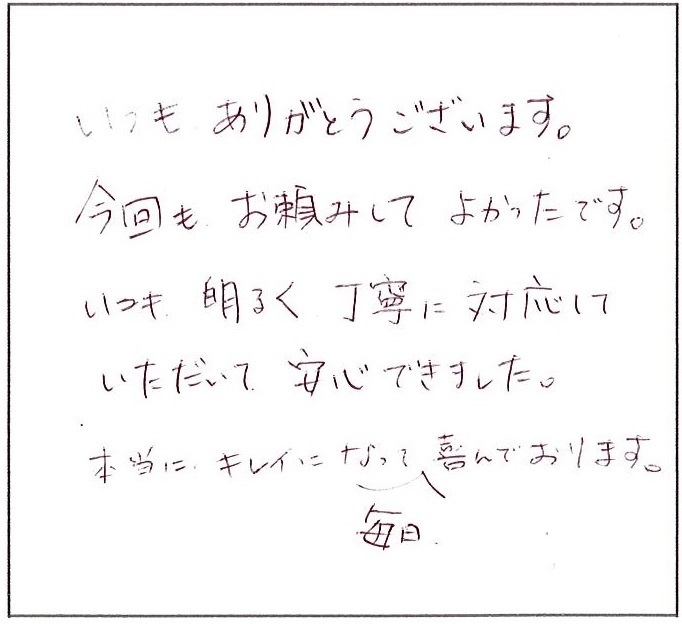 いつも ありがとうございます。
今回も お頼みして よかったです。
いつも 明るく 丁寧に 対応して
いただいて 安心できました。
本当に キレイになって 喜んでおります。
毎日